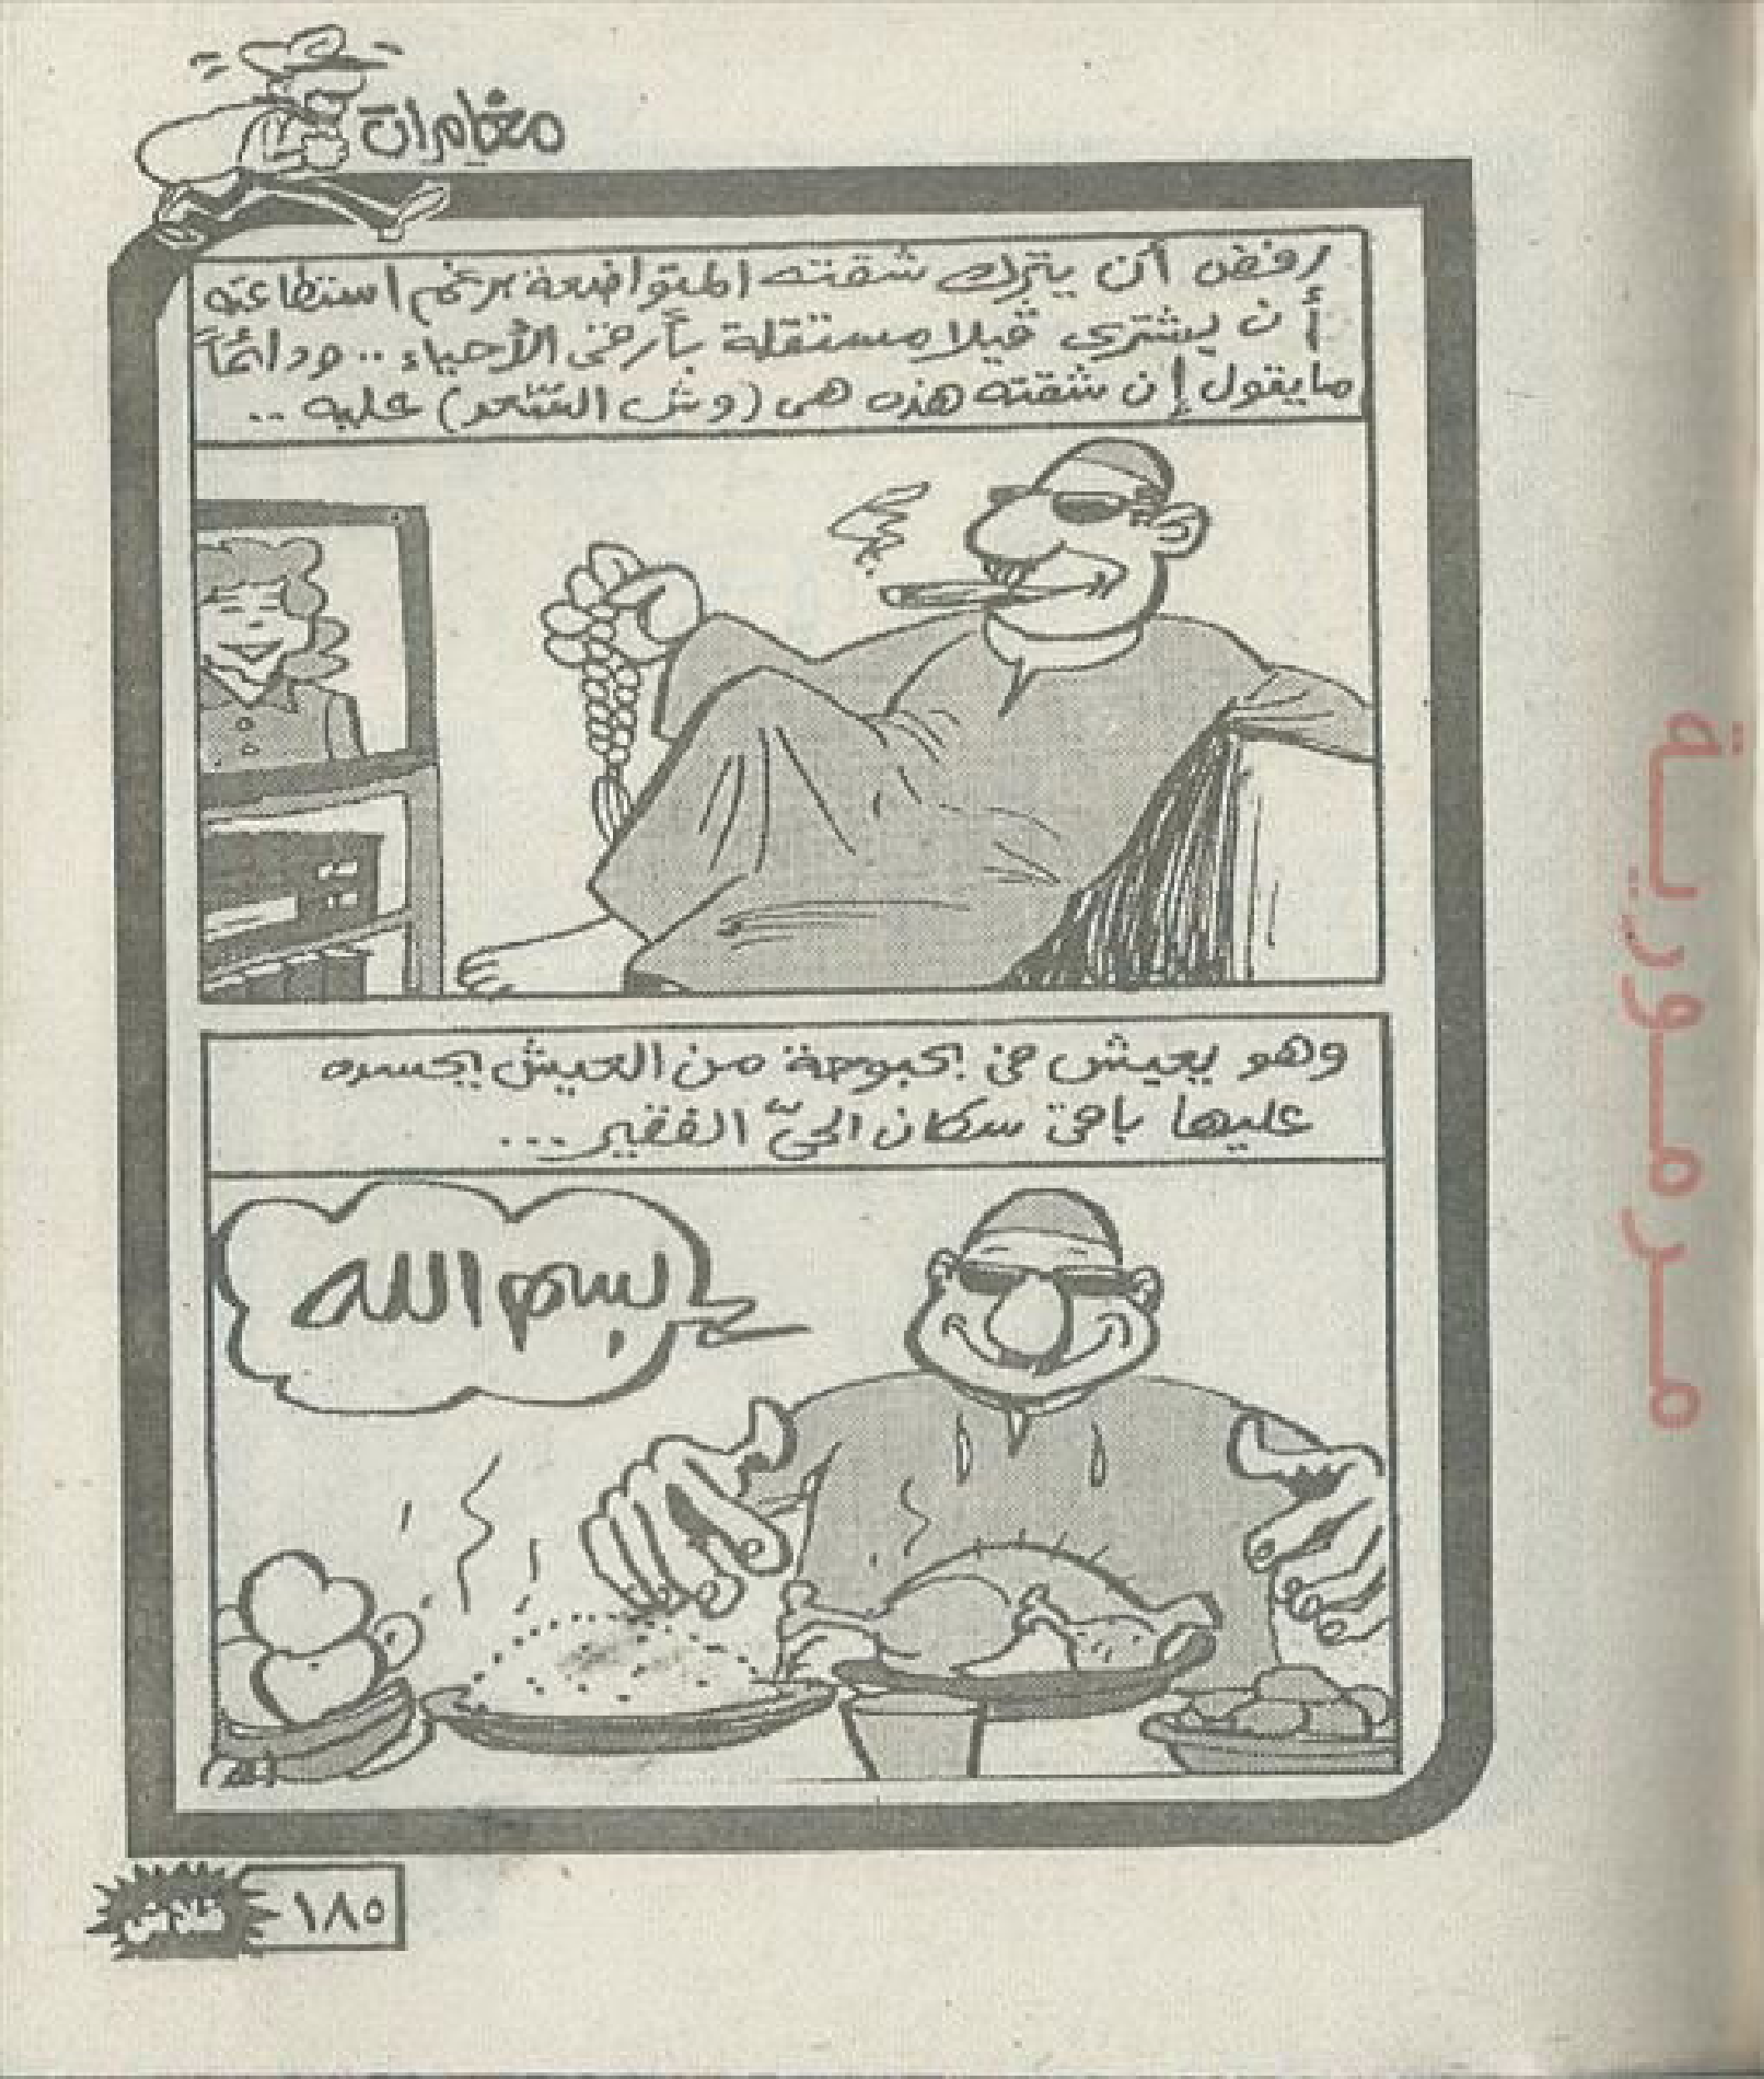 مغامرات
رفض أن يترك شقته المتواضعة برغم استطاعته
أن يشترى ڤيلا مستقلة بأرقى الأحياء .. ودائماً
مايقول إن شقته هذه هى (وش السَّعد) عليه ..
وهو يعيش فى بحبوحة من العيش يحسده
عليها باقى سكان الحىّ الفقير ...
بسم الله
١٨٥
فلاش
مرمورية